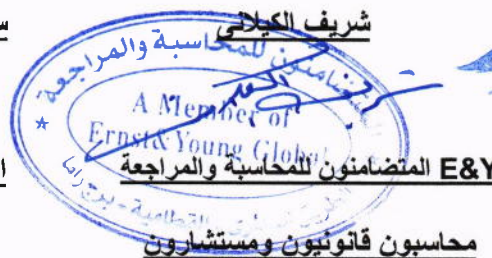 شريف الكيلاني
المتضامنون للمحاسبة والمراجعة
A Member of
Ernst & Young Global
E&Y المتضامنون للمحاسبة والمراجعة
محاسبون قانونيون ومستشارون